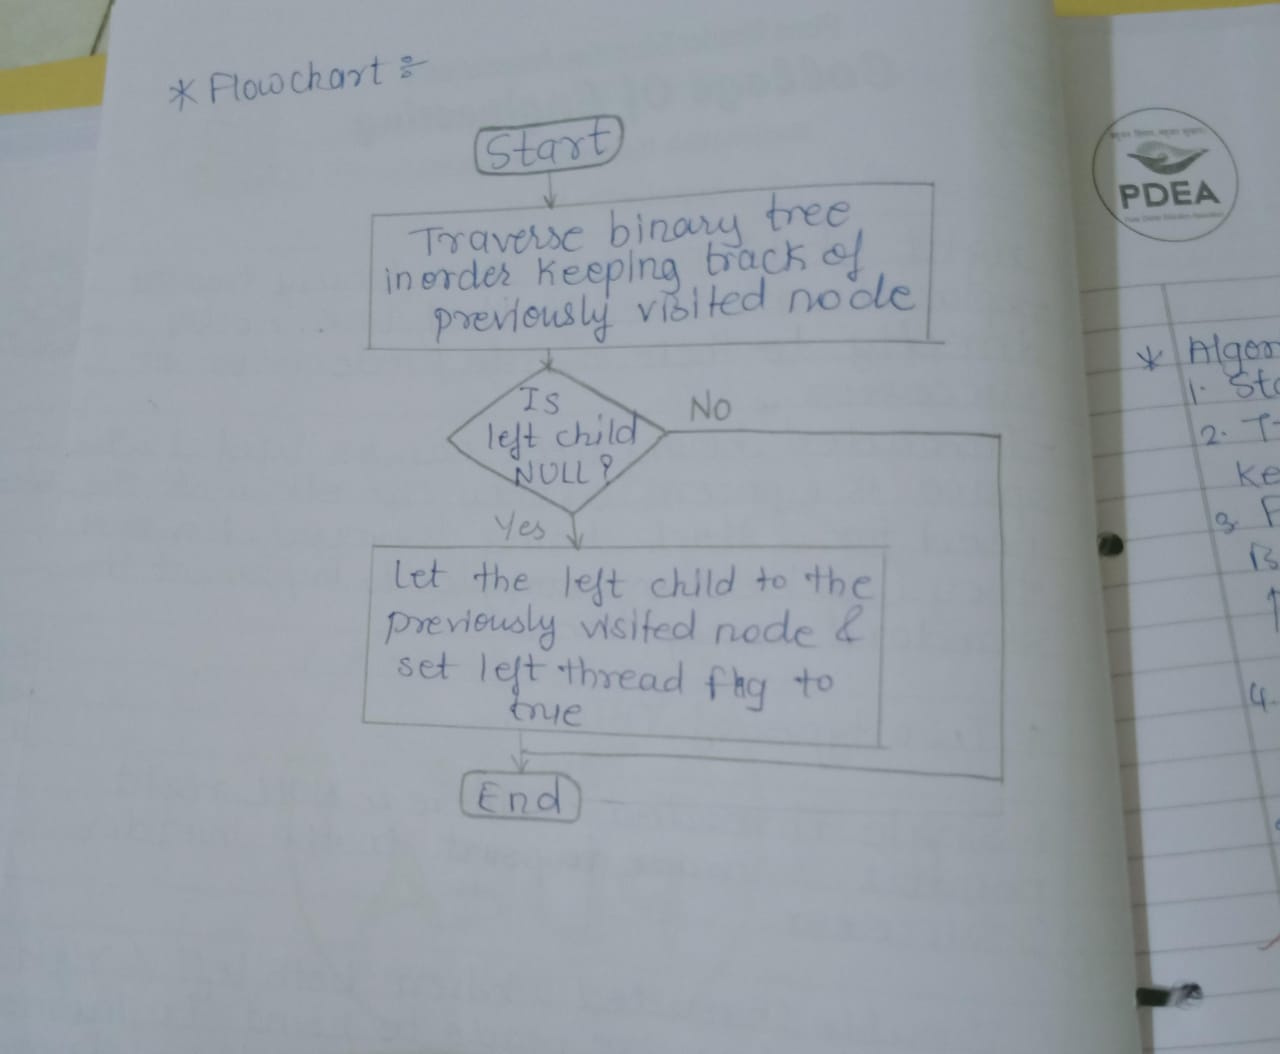 * Flowchart :-
Start
Traverse binary tree
inorder keeping track of
previously visited node
Is
left child
NULL?
No
Yes
Let the left child to the
previously visited node &
set left thread flag to
true
End
PDEA
* Algor
1. Sta
2. T
Ke
3. F
4.